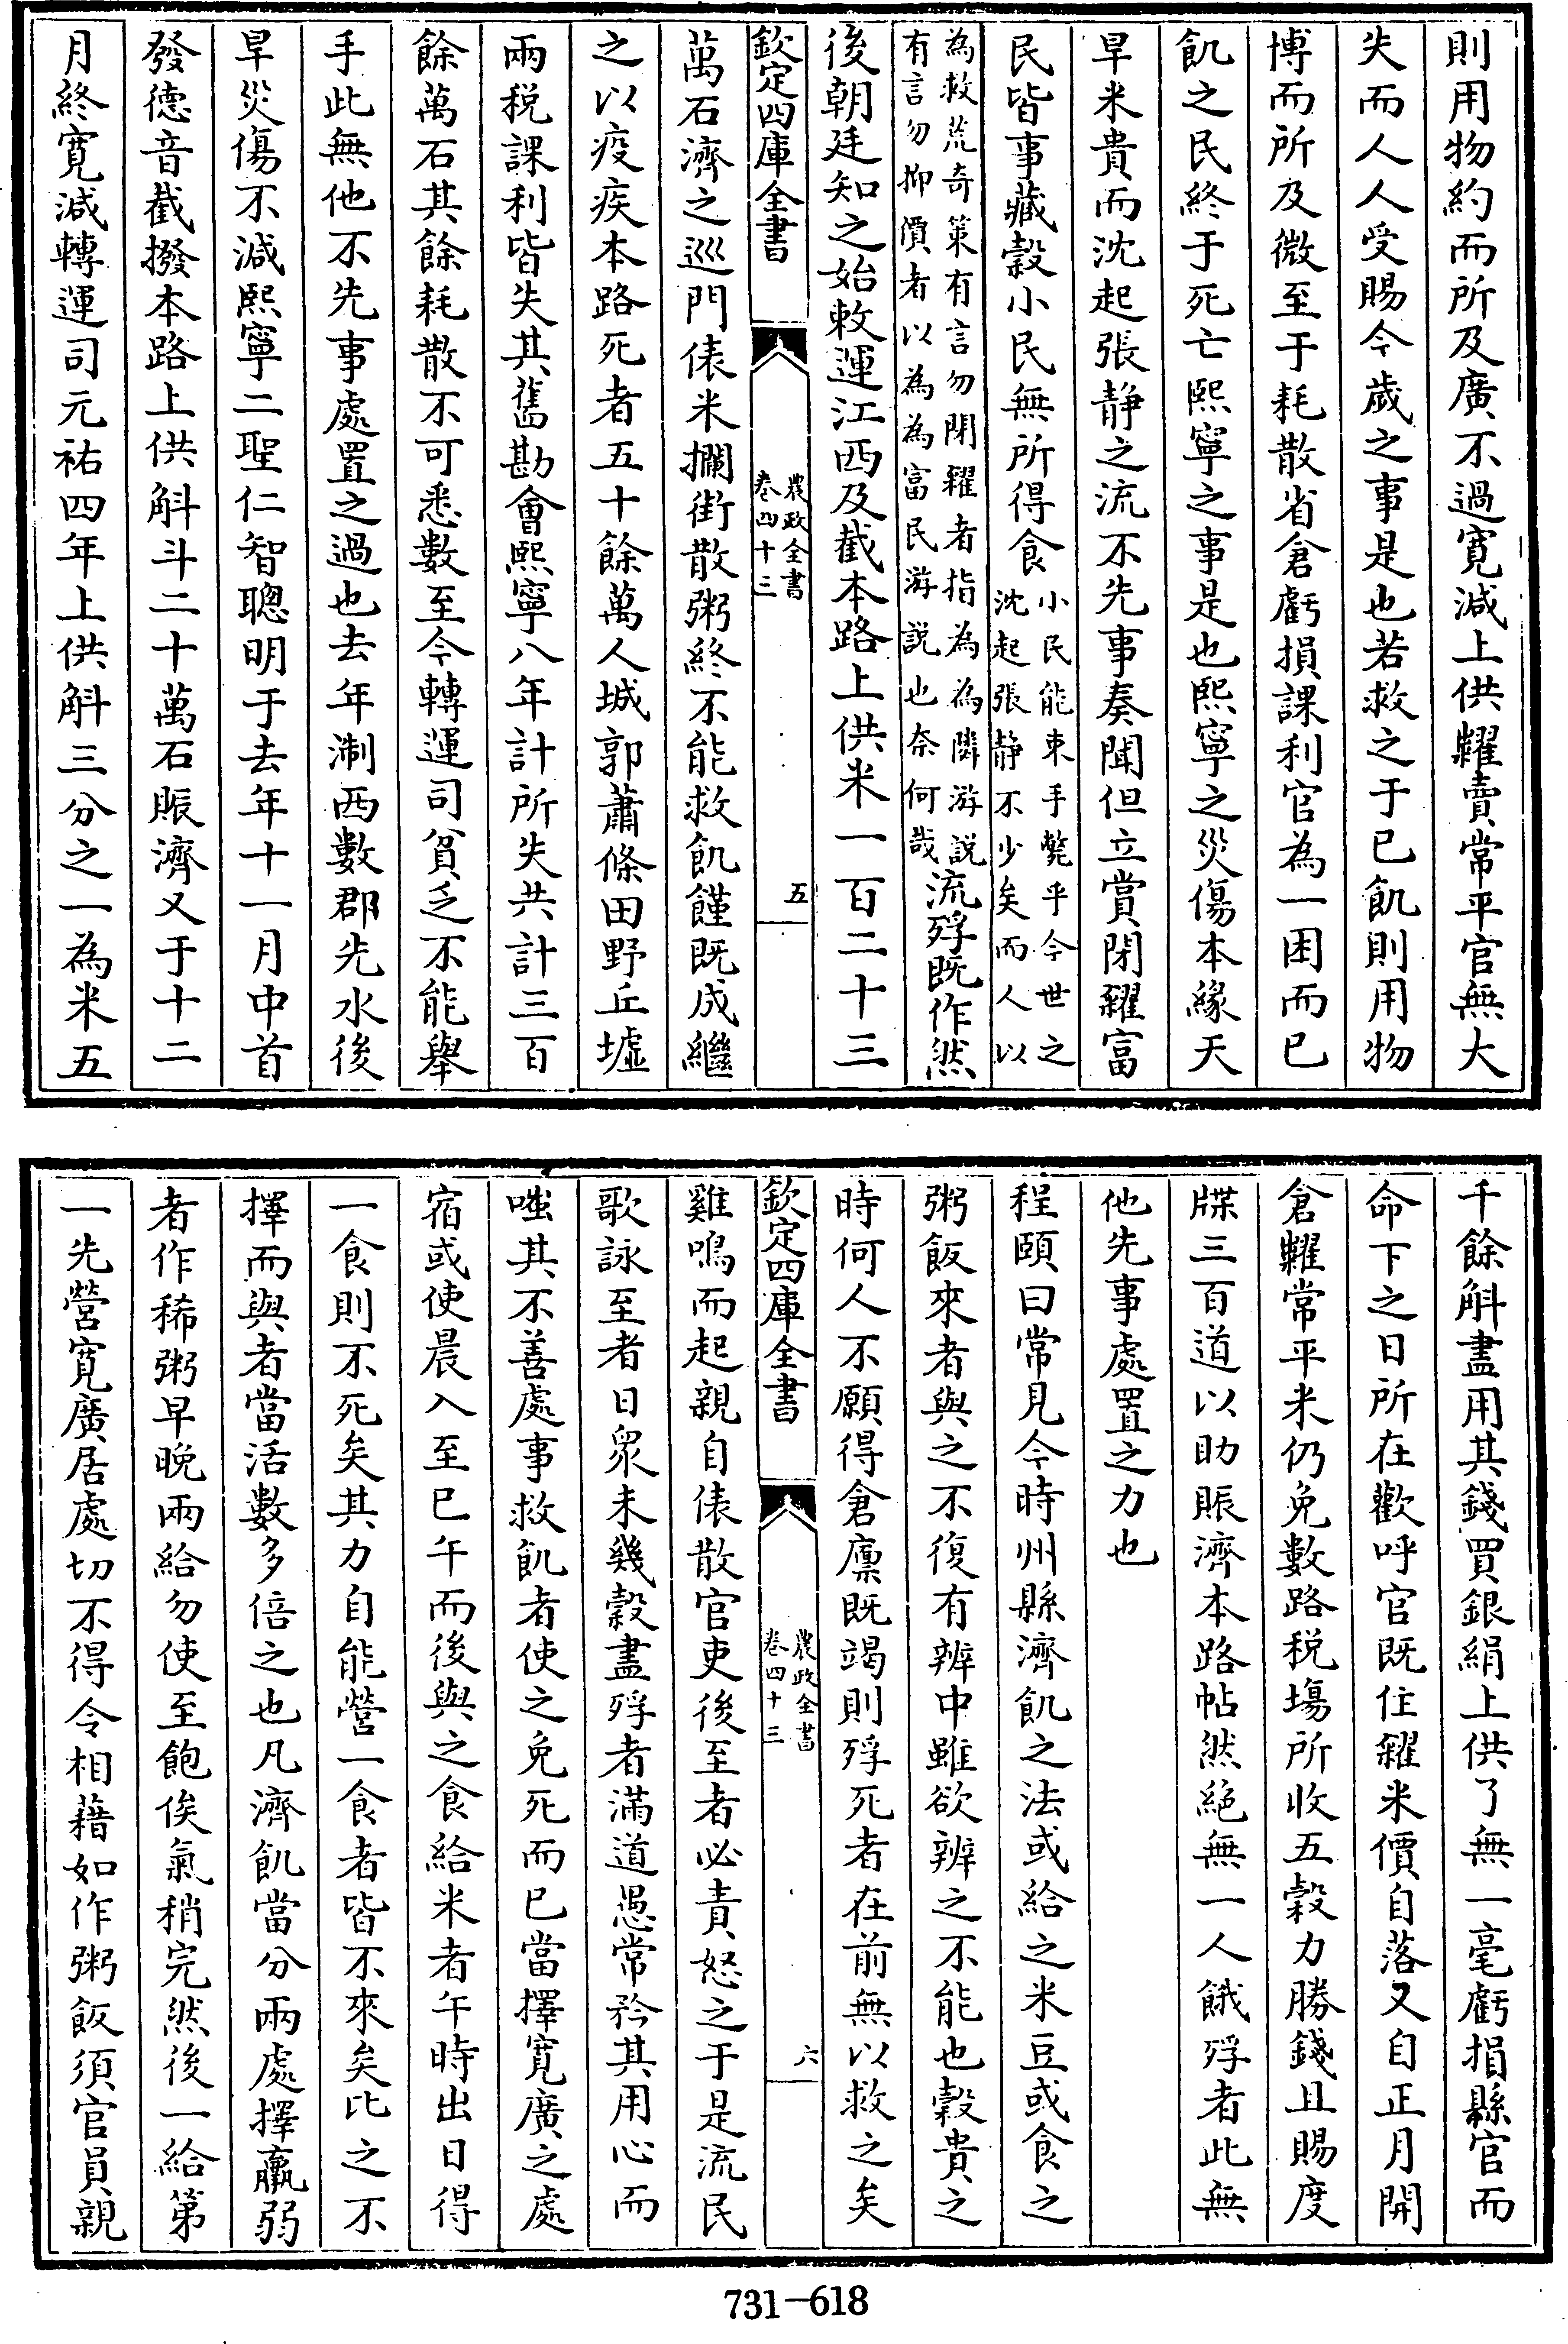 則用物約而所及廣不過寛減上供糶賣常平官無大
失而人人受賜今歲之事是也若救之于已飢則用物
博而所及微至于耗散省倉虧損課利官為一困而已
飢之民終于死亡熙寧之事是也熙寧之災傷本緣天
旱米貴而沈起張靜之流不先事奏聞但立賞閉糴富
民皆事藏穀小民無所得食
小民能束手斃乎今世之
沈起張靜不少矣而人以
為救荒奇策有言勿閉糴者指為為隣游説
有言勿抑價者以為為富民游説也奈何哉
流殍既作然
後朝廷知之始敕運江西及截本路上供米一百二十三
欽定四庫全書
農政全書
卷四十三
五
萬石濟之巡門俵米攔街散粥終不能救飢饉既成繼
之以疫疾本路死者五十餘萬人城郭蕭條田野丘墟
兩税課利皆失其舊勘會熙寧八年計所失共計三百
餘萬石其餘耗散不可悉數至今轉運司貧乏不能舉
手此無他不先事處置之過也去年淛西數郡先水後
旱災傷不減熙寧二聖仁智聰明于去年十一月中首
發德音截撥本路上供斛斗二十萬石賑濟又于十二
月終寛減轉運司元祐四年上供斛三分之一為米五
千餘斛盡用其錢買銀絹上供了無一毫虧損縣官而
命下之日所在歡呼官既住糴米價自落又自正月開
倉糶常平米仍免數路税場所收五穀力勝錢且賜度
牒三百道以助賑濟本路帖然絕無一人餓殍者此無
他先事處置之力也
程頤曰常見今時州縣濟飢之法或給之米豆或食之
粥飯來者與之不復有辨中雖欲辨之不能也穀貴之
時何人不願得倉廩既竭則殍死者在前無以救之矣
欽定四庫全書
農政全書
卷四十三
六
雞鳴而起親自俵散官吏後至者必責怒之于是流民
歌詠至者日衆未幾穀盡殍者滿道愚常矜其用心而
嗤其不善處事救飢者使之免死而已當擇寛廣之處
宿或使晨入至巳午而後與之食給米者午時出日得
一食則不死矣其力自能營一食者皆不來矣比之不
擇而與者當活數多倍之也凡濟飢當分兩處擇羸弱
者作稀粥早晚兩給勿使至飽俟氣稍完然後一給第
一先營寛廣居處切不得令相藉如作粥飯須官員親
731-618